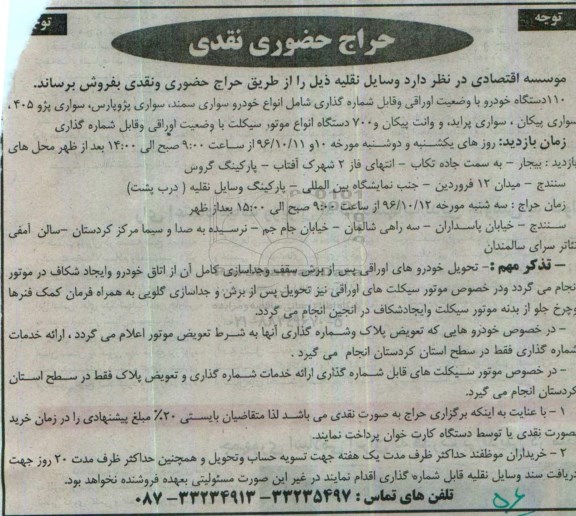 توجه
توجه
حراج حضوری نقدی
موسسه اقتصادی در نظر دارد وسایل نقلیه ذیل را از طریق حراج حضوری ونقدی بفروش برساند.
۱۱۰دستگاه خودرو با وضعیت اوراقی وقابل شماره گذاری شامل انواع خودرو سواری سمند، سواری پژوپارس، سواری پژو ۴۰۵ ،
سواری پیکان ، سواری پراید، و وانت پیکان و۷۰۰ دستگاه انواع موتور سیکلت با وضعیت اوراقی وقابل شماره گذاری
زمان بازدید: روز های یکشنبه و دوشنبه مورخه ۱۰و ۹۶/۱۰/۱۱ از ساعت ۹:۰۰ صبح الی ۱۴:۰۰ بعد از ظهر محل های
بازدید : بیجار – به سمت جاده تکاب – انتهای فاز ۲ شهرک آفتاب – پارکینگ گروس
سنندج – میدان ۱۲ فروردین – جنب نمایشگاه بین المللی – پارکینگ وسایل نقلیه ( درب پشت)
زمان حراج : سه شنبه مورخه ۹۶/۱۰/۱۲ از ساعت ۹:۰۰ صبح الی ۱۵:۰۰ بعداز ظهر
سنندج – خیابان پاسداران – سه راهی شالمان – خیابان جام جم – نرسیده به صدا و سیما مرکز کردستان –سالن آمفی
تئاتر سرای سالمندان
– تذکر مهم :– تحویل خودرو های اوراقی پس از برش سقف وجداسازی کامل آن از اتاق خودرو وایجاد شکاف در موتور
انجام می گردد ودر خصوص موتور سیکلت های اوراقی نیز تحویل پس از برش و جداسازی گلویی به همراه فرمان کمک فنرها
وچرخ جلو از بدنه موتور سیکلت وایجادشکاف در انجین انجام می گردد.
– در خصوص خودرو هایی که تعویض پلاک وشماره گذاری آنها به شرط تعویض موتور اعلام می گردد ، ارائه خدمات
شماره گذاری فقط در سطح استان کردستان انجام می گیرد .
– در خصوص موتور سیکلت های قابل شماره گذاری ارائه خدمات شماره گذاری و تعویض پلاک فقط در سطح استان
کردستان انجام می گیرد.
۱ – با عنایت به اینکه برگزاری حراج به صورت نقدی می باشد لذا متقاضیان بایستی ۲۰٪ مبلغ پیشنهادی را در زمان خرید
بصورت نقدی یا توسط دستگاه کارت خوان پرداخت نمایند.
۲ – خریداران موظفند حداکثر ظرف مدت یک هفته جهت تسویه حساب وتحویل و همچنین حداکثر ظرف مدت ۲۰ روز جهت
دریافت سند وسایل نقلیه قابل شماره گذاری اقدام نمایند در غیر این صورت مسئولیتی بعهده فروشنده نخواهد بود.
تلفن های تماس : ۳۳۲۳۵۴۹۷– ۳۳۲۳۴۹۱۳–۰۸۷
۵۶